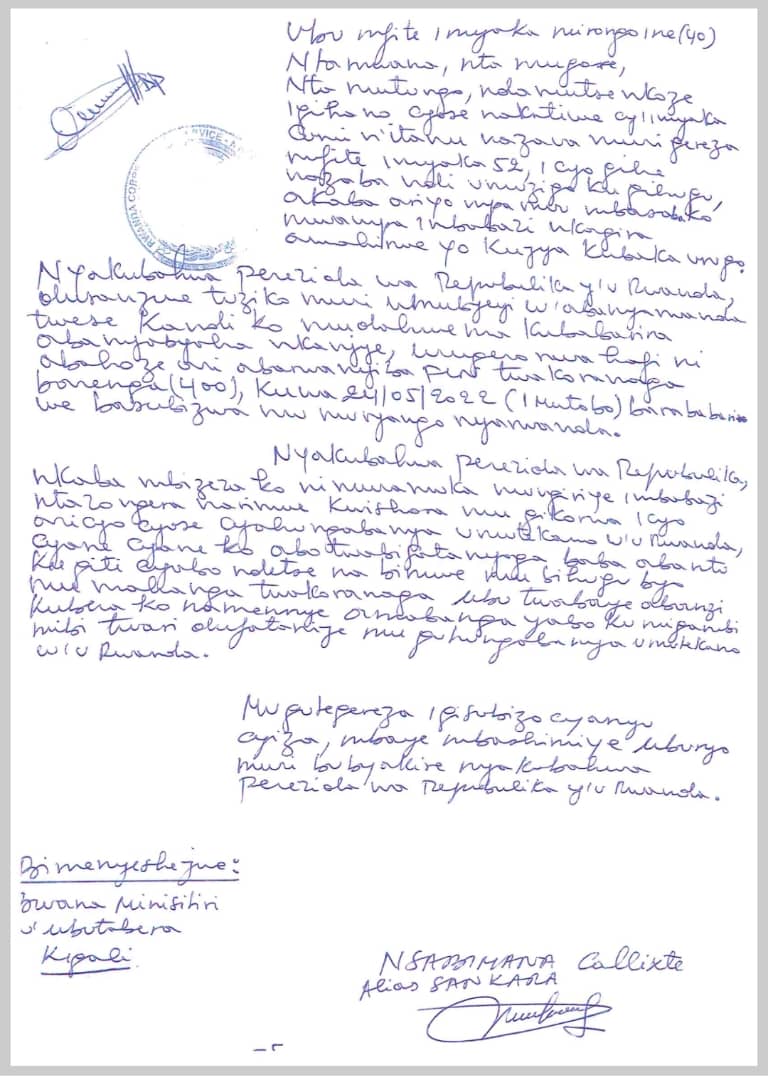 Ubu mfite imyaka mirongo ine (40)
Nta mwana, nta mugore,
Nta mutungo, ndamutse nkoze
igihano cyose nakatiwe cy'imyaka
cumi n'itanu nazava muri gereza
mfite imyaka 52, icyo gihe
nazaba ndi umuzigo ku gihugu,
akaba ariyo mpamvu mbasabako
mwampa imbabazi nkagira
amahirwe yo kujya kubaka urugo.
RWANDA CORR
RVICE
Nyakubahwa perezida wa Repubulika y'u Rwanda,
dusanzwe tuziko muri umubyeyi w'abanyarwanda
twese kandi ko mudahwema kubabarira
abanyabyaha nkanjye, urugero rwa hafi ni
abahoze ari abarwanyi ba
twakoranaga
barenga (400), kuwa 24/05/2022 (i Mutobo)
basubizwa mu muryango nyarwanda.
Nyakubahwa perezida wa Repubulika,
nkaba mbizeza ko ni muramuka mungiriye imbabazi
ntazongera narimwe kwishora mu gikorwa icyo
aricyo cyose cyahungabanya umutekano w'u Rwanda,
cyane cyane ko abo twabifatanyaga baba abantu
ku giti cyabo ndetse na bimwe mu bihugu byo
mu mahanga twakoranaga ubu twabaye abanzi
kubera ko namennye amabanga yabo ku migambi
mibi twari dufatanije mu guhungabanya umutekano
w'u Rwanda.
Mu gutegereza igisubizo cyanyu
cyiza, mbaye mbashimiye uburyo
muri bubyakire nyakubahwa
perezida wa Repubulika y'u Rwanda.
Bimenyeshejwe:
bwana Minisitiri
w'ubutabera
Kigali
NSABIMANA Callixte
Alias SANKARA